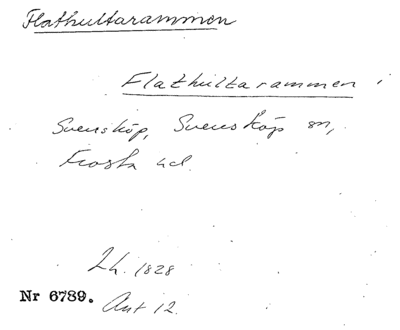 Flathultarammen
Flathultarammen
Svensköp, Svensköps sn,
Frosta hd.
Lh. 1828
Nr 6789. Akt 12.